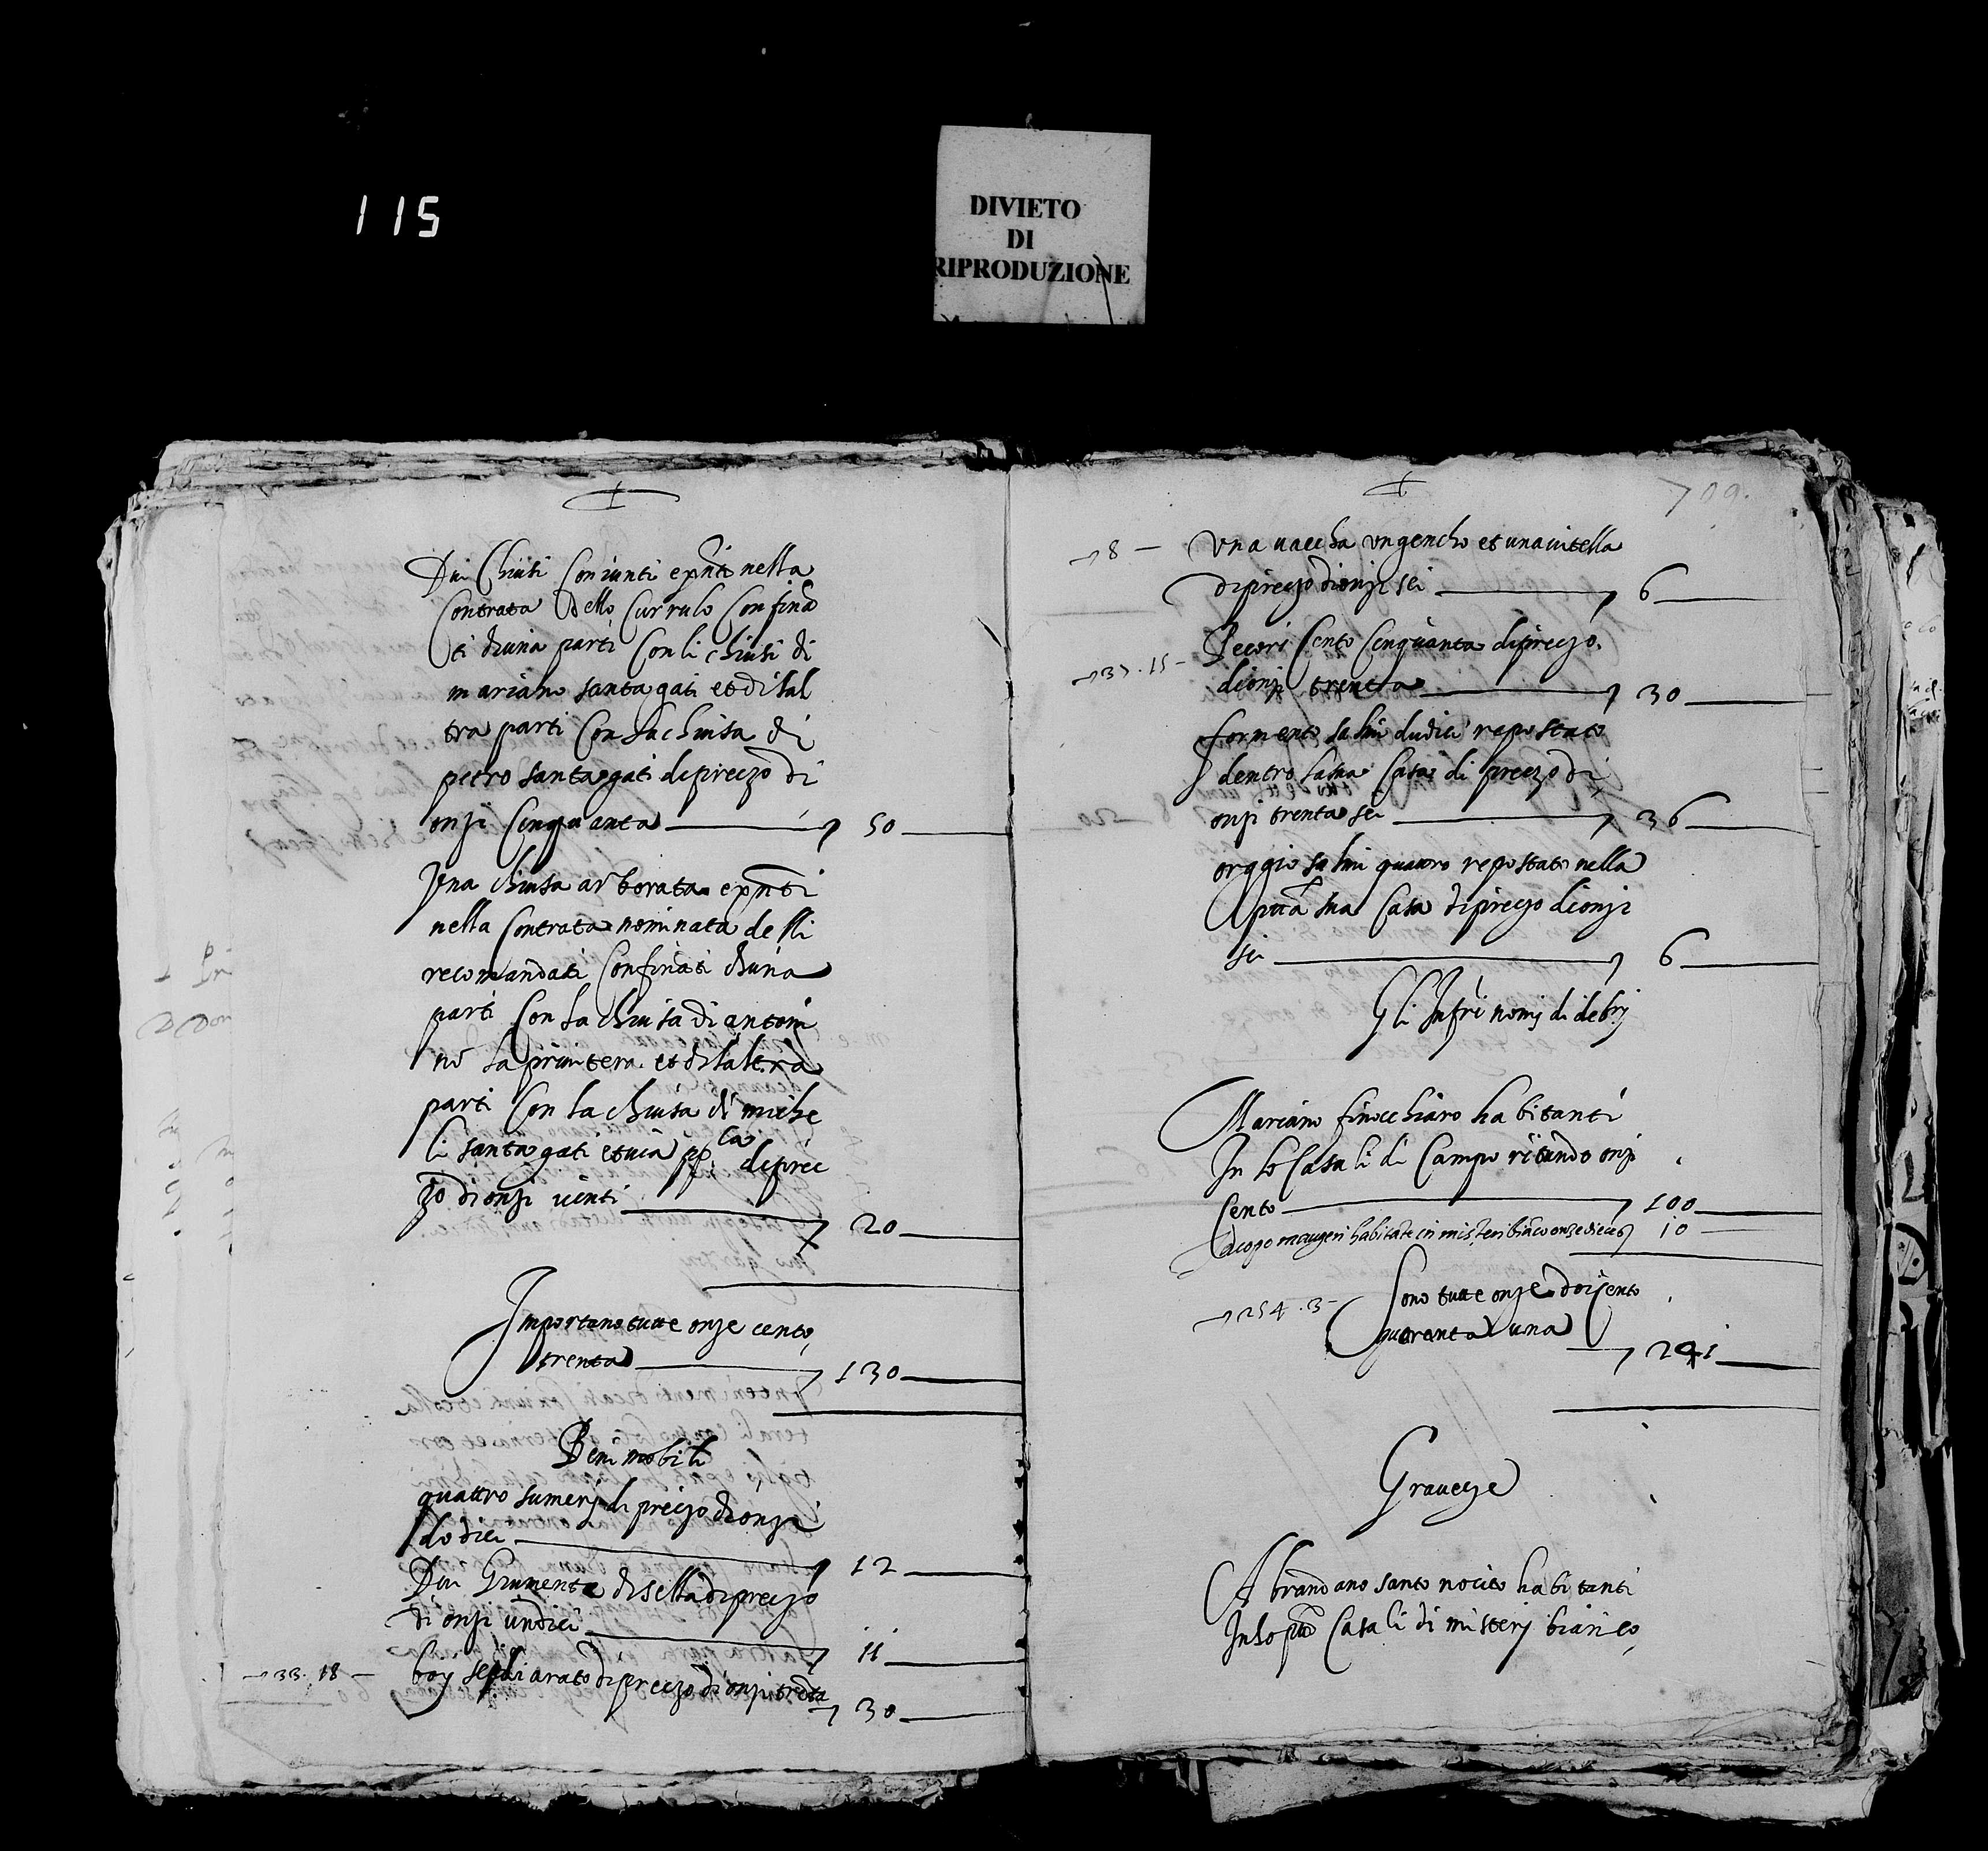 115
DIVIETO
DI
RIPRODUZIONE
Dui Chiusi Coniunti expnti nella
Contrata dello Currulo Confina
ti diuna parti Conli chiusi di
mariano santagati et di lal
tra parti Con la chiusa di
petro santagati di prezzo di
onzi Cinquanta 50
Una chiusa arborata expnti
nella Contrata nominata delli
recomandati Confinati diuna
parti Con la chiusa di antoni
no la priuitera et di lal tra
parti Con la chiusa di miche
li santagati et uia pp.ca di prec
zo di onzi uinti 20
Importano tutte onze cento
trenta 130
Beni mobili
quattro sumerj di prezzo di onzi
dodici 12
Dui Giumente di sella di prezzo
di onzi undici 11
33.18 boy sey di arato di prezzo di onzi trenta 30
709.
8 Una uaccha un gencho et una uitella
di prezzo di onzi sei 6
37.15 Pecori Cento Cinquanta di prezzo
di onzi trenta 30
formento salmi dudici repostato
dentro la sua Casa di prezzo di
onzi trenta sei 36
orggio salmi quattro repostato nella
ptta sua Casa di prezzo di onzi
sei 6
Gli Infri nomj di debrj
Mariano finocchiaro habitanti
In lo Casali di Campo ritundo onzi
Cento 100
Iacopo maugeri habitate in misteri bianco onze diece 10
254.3 Sono tutte onze doicento
quaranta una 241
Grauezze
A brandano santo nocito habitanti
In lo ptto Casali di misterj bianco